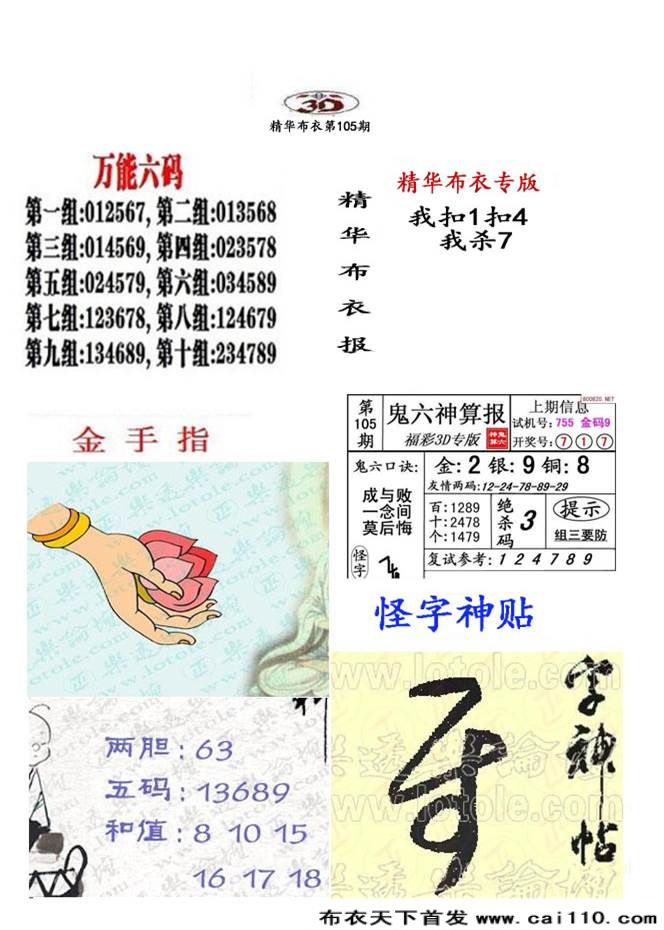 3D
精华布衣第105期
万能六码
第一组:012567,第二组:013568
第三组:014569,第四组:023578
第五组:024579,第六组:034589
第七组:123678,第八组:124679
第九组:134689,第十组:234789
精华布衣报
精华布衣专版
我扣1扣4
我杀7
金手指
第105期
鬼六神算报
福彩3D专版
神鬼第六
上期信息
试机号:755 金码9
开奖号:⑦①⑦
鬼六口诀:
成与败
一念间
莫后悔
怪字
金:2银:9铜:8
友情两码:12-24-78-89-29
百:1289
十:2478
个:1479
绝杀码
3
提示
组三要防
复试参考:124789
怪字神贴
www.lotole.com
两胆:63
五码:13689
和值:8 10 15
16 17 18
字神帖
www.lotole.com
布衣天下首发 www.cai110.com